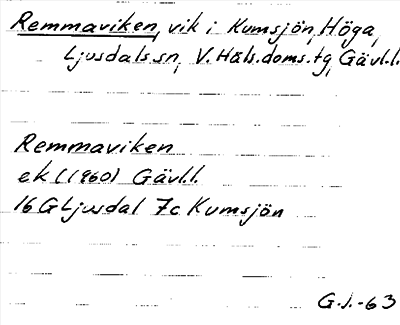 Remmaviken, vik i Kumsjön, Höga,
Ljusdals.sn, V. Häls.doms.tg, Gävl.l.
Remmaviken
ek (1960) Gävl.l.
16G Ljusdal 7c Kumsjön
G.J.-63